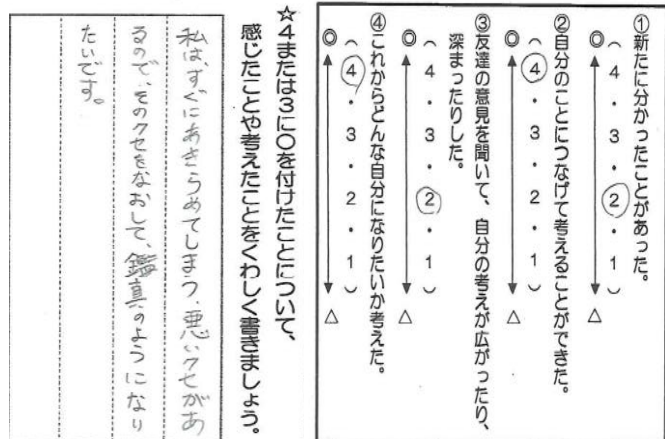 ①新たに分かったことがあった。
◎（4・3・2・1）△
②自分のことにつなげて考えることができた。
◎（4・3・2・1）△
③友達の意見を聞いて、自分の考えが広がったり、
深まったりした。
◎（4・3・2・1）△
④これからどんな自分になりたいか考えた。
◎（4・3・2・1）△
☆4または3に○を付けたことについて、
感じたことや考えたことをくわしく書きましょう。
私は、すぐにあきらめてしまう、悪いクセがあ
るので、そのクセをなおして、鑑真のようになり
たいです。